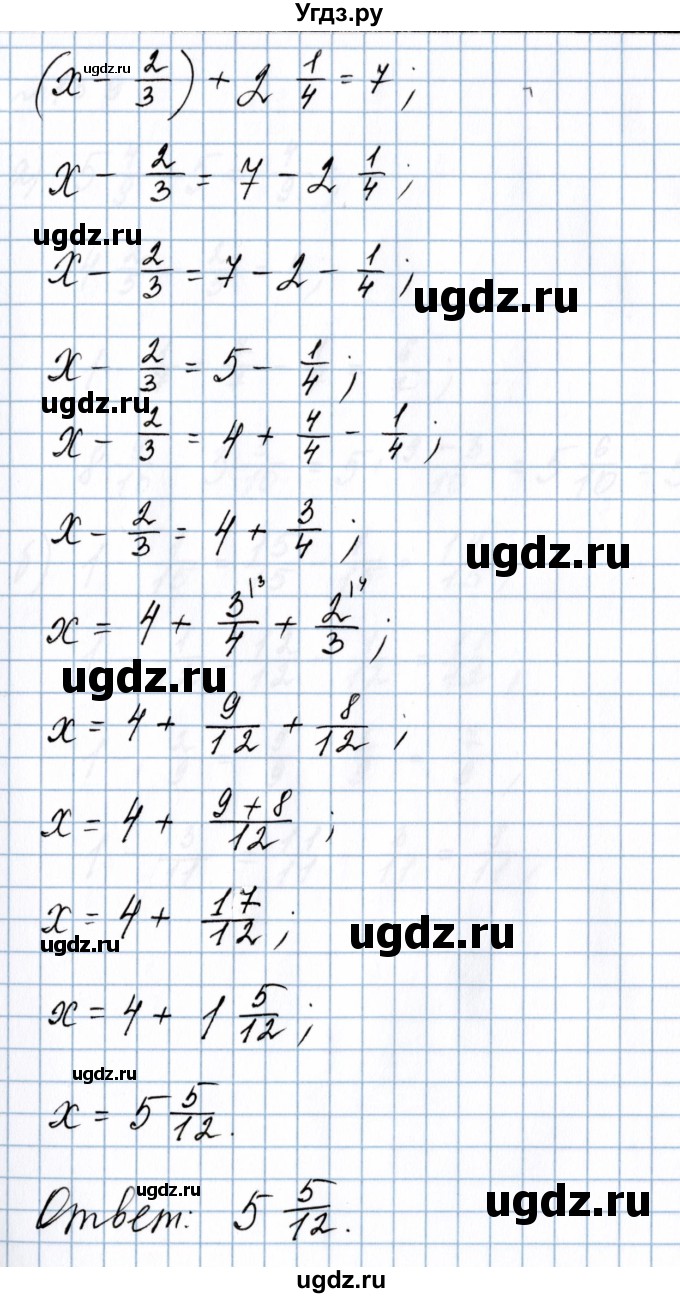 Угдз.ру
(x - 2/3) + 2 1/4 = 7;
ugdz.ru
x - 2/3 = 7 - 2 1/4;
ugdz.ru
x - 2/3 = 7 - 2 - 1/4;
ugdz.ru
x - 2/3 = 5 - 1/4;
ugdz.ru
x - 2/3 = 4 + 4/4 - 1/4;
x - 2/3 = 4 + 3/4;
ugdz.ru
x = 4 + 3/4 |3 + 2/3 |4;
ugdz.ru
x = 4 + 9/12 + 8/12;
x = 4 + (9 + 8)/12;
x = 4 + 17/12;
ugdz.ru
ugdz.ru
x = 4 + 1 5/12;
ugdz.ru
x = 5 5/12.
ugdz.ru
ugdz.ru
Ответ: 5 5/12.
ugdz.ru